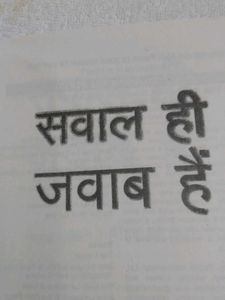 सवाल ही
जवाब हैं